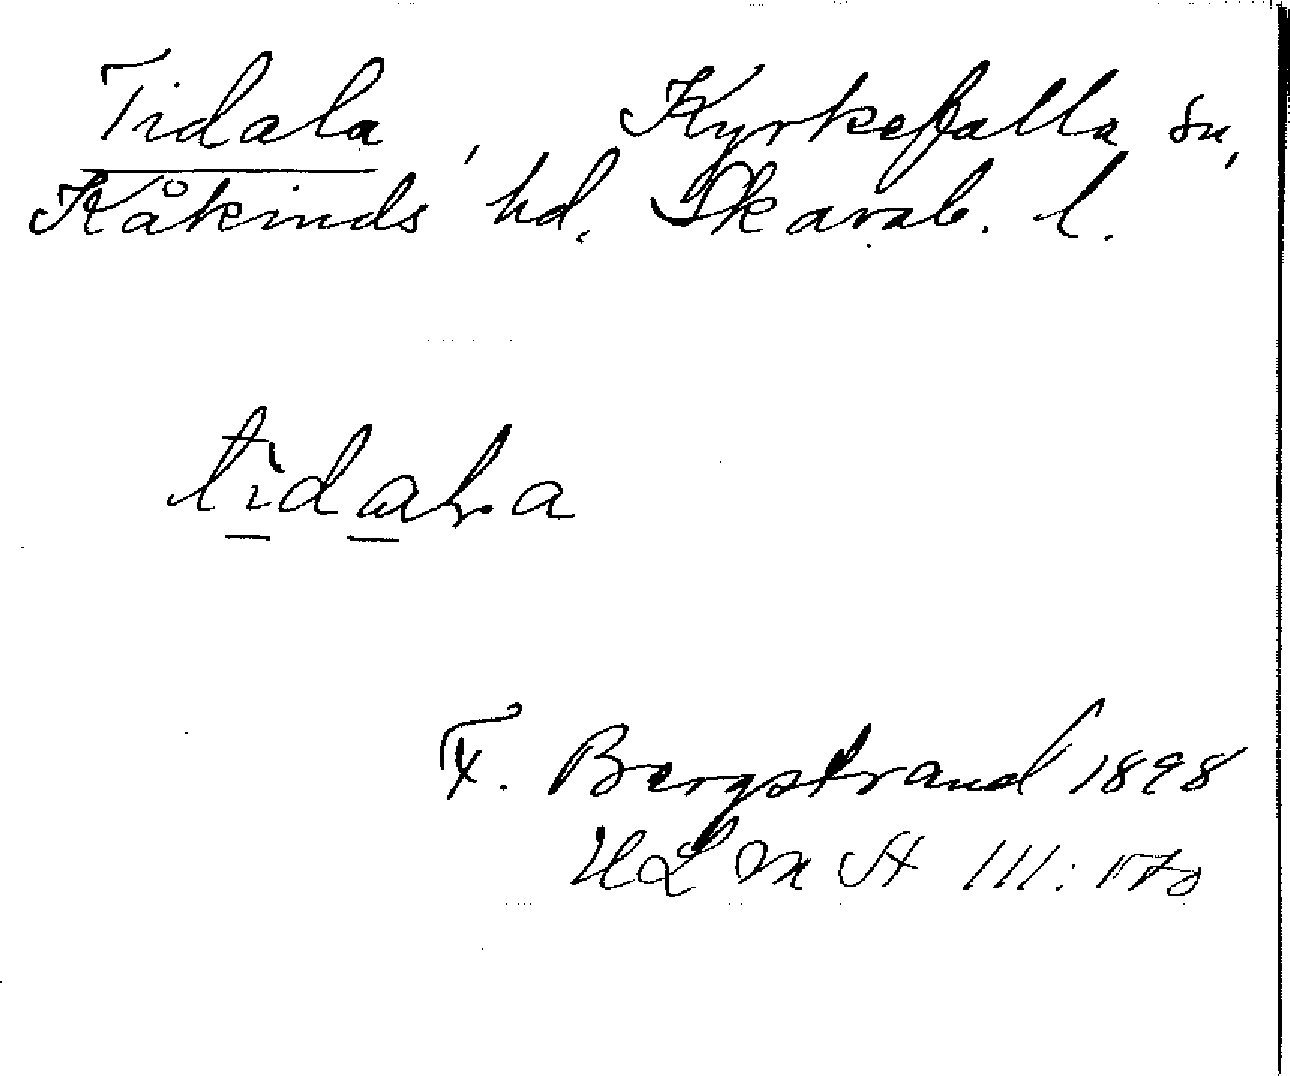 Tidala, Kyrkefalla sn,
Kåkinds hd. Skarab. l.
tidala
F. Bergstrand 1898
ULMA III: